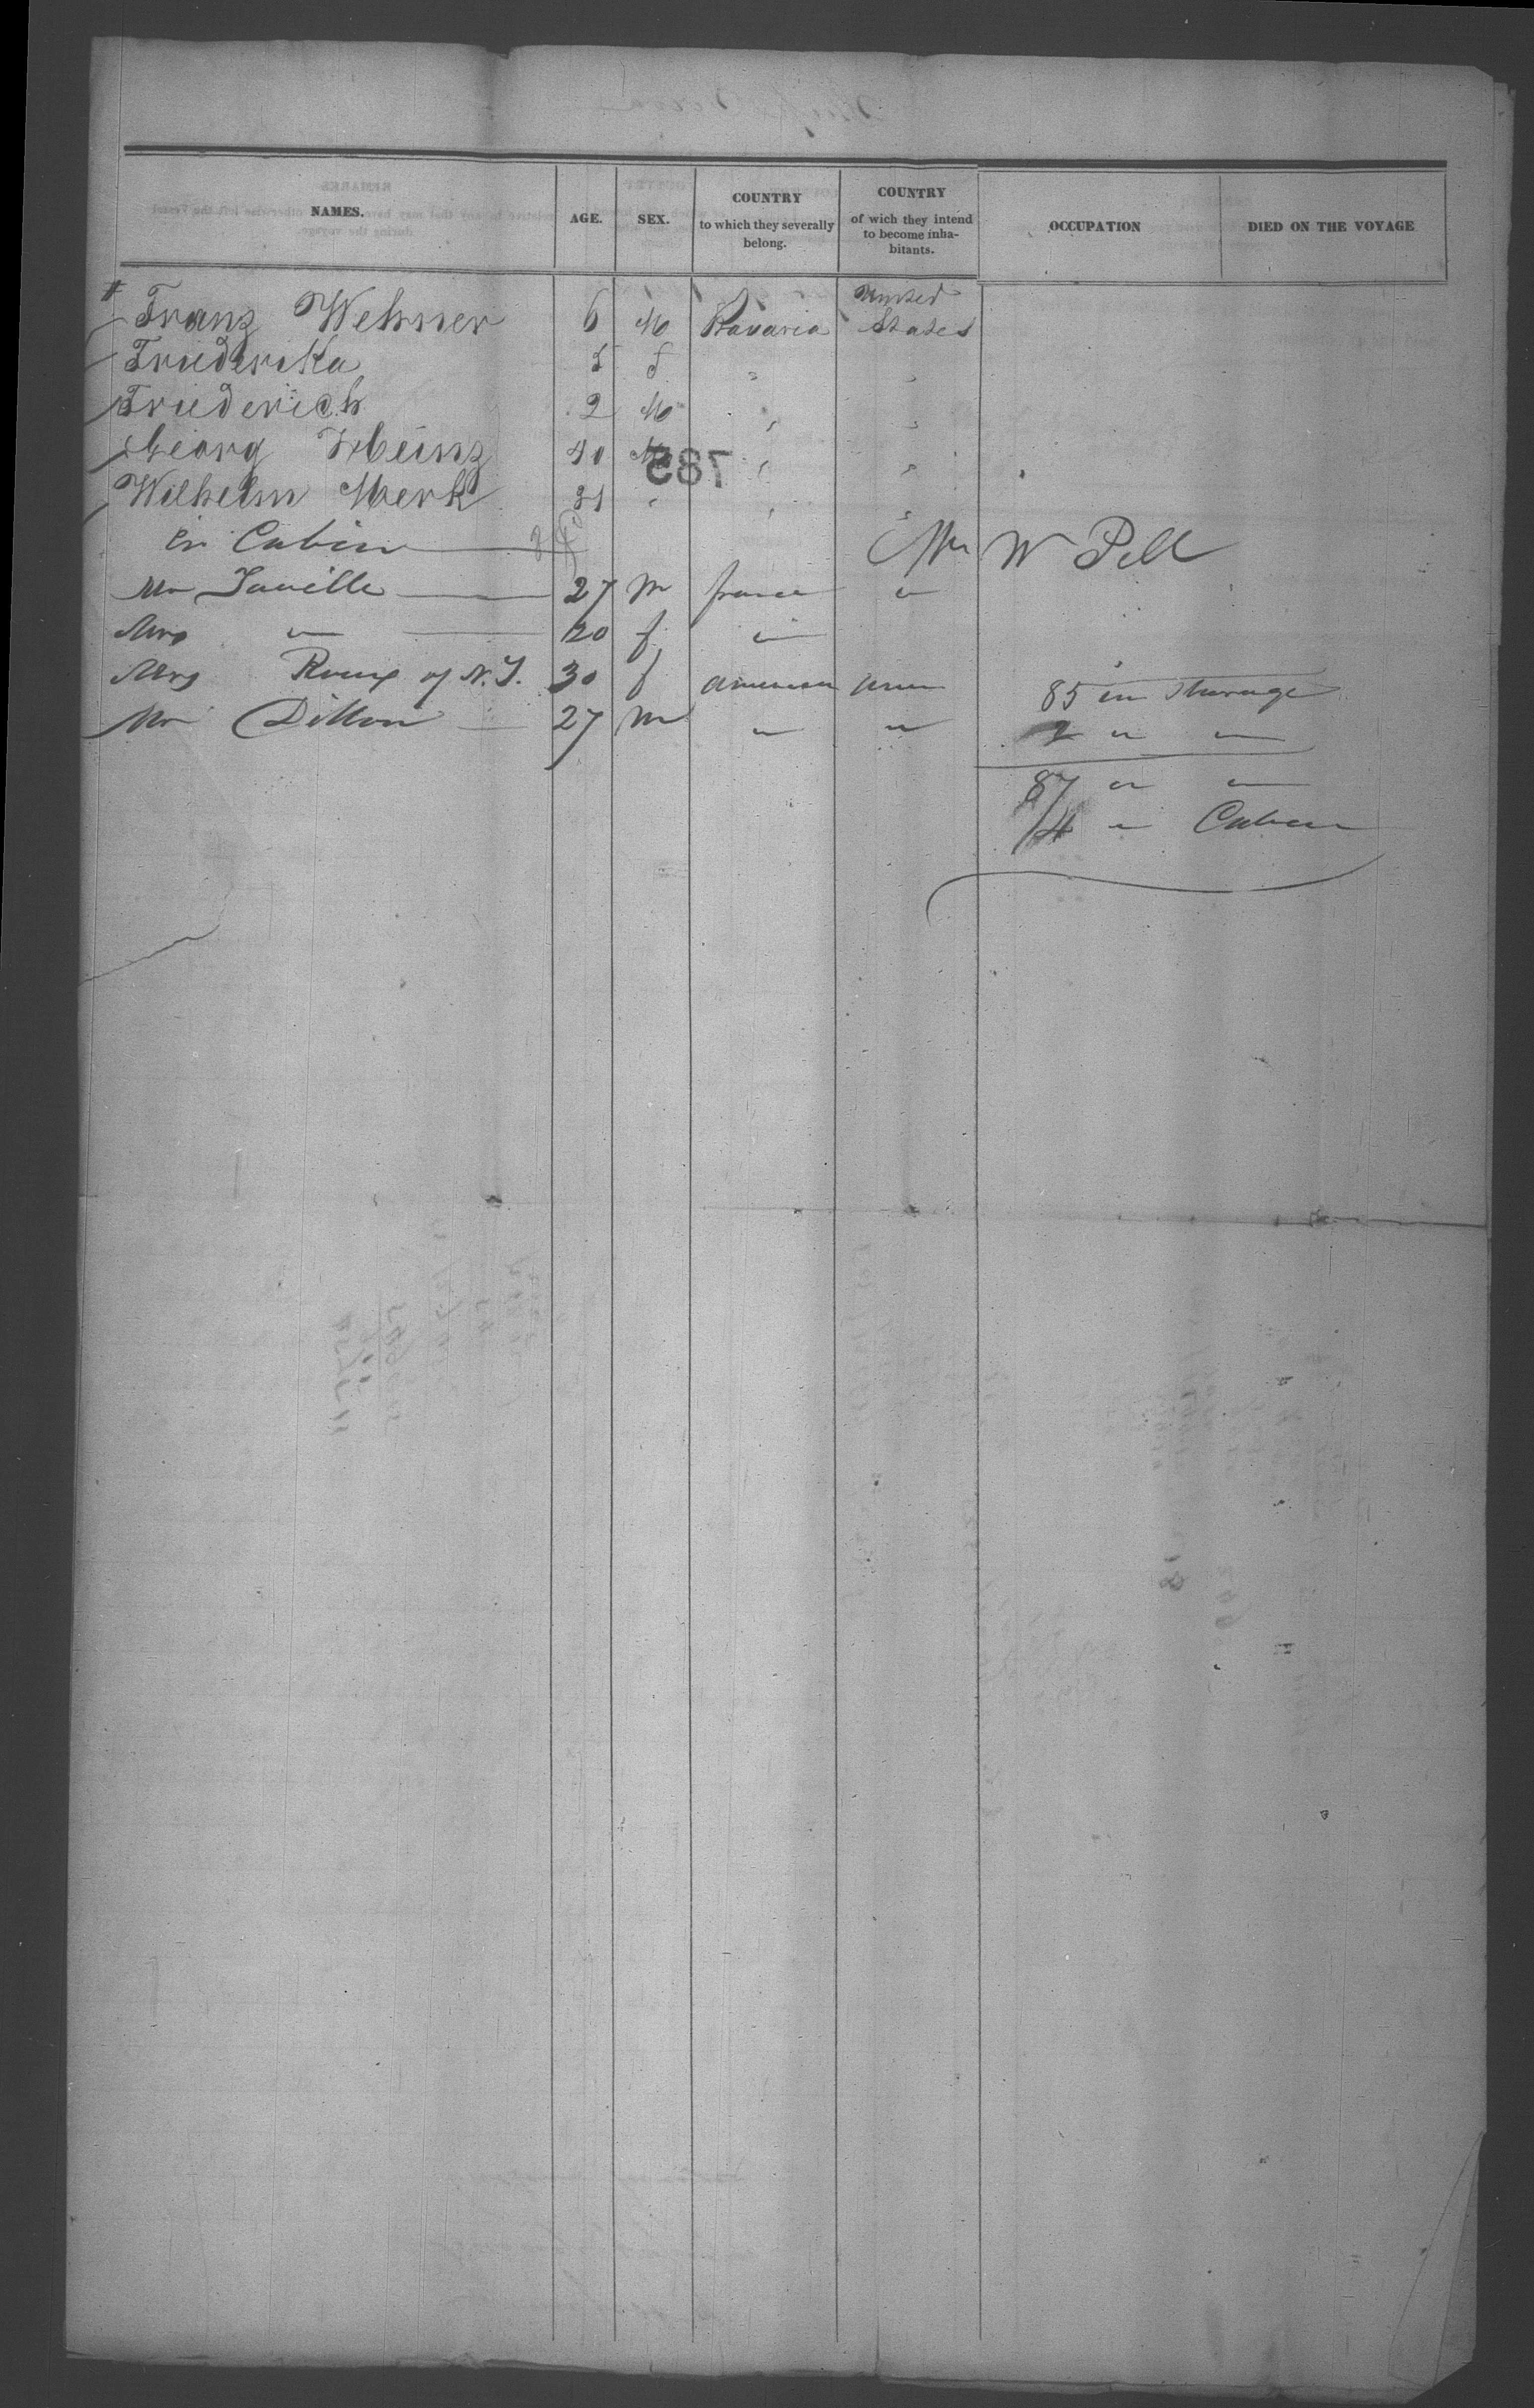 NAMES. AGE. SEX. COUNTRY to which they severally belong. COUNTRY of wich they intend to become inhabitants. OCCUPATION DIED ON THE VOYAGE
Franz Wehner 6 M Bavaria United States
Friederika 5 f " "
Friederich 2 M " "
Georg Heinz 40 M " "
Wilhelm Merk 31 " " "
785
in Cabin
W Pell
Mr 27 m france "
Mrs " 20 f "
Mrs Roux of N.Y. 30 f american amer
Mr Dillon 27 m " "
85 in Sterage
2 " "
87 " "
4 " Cabin